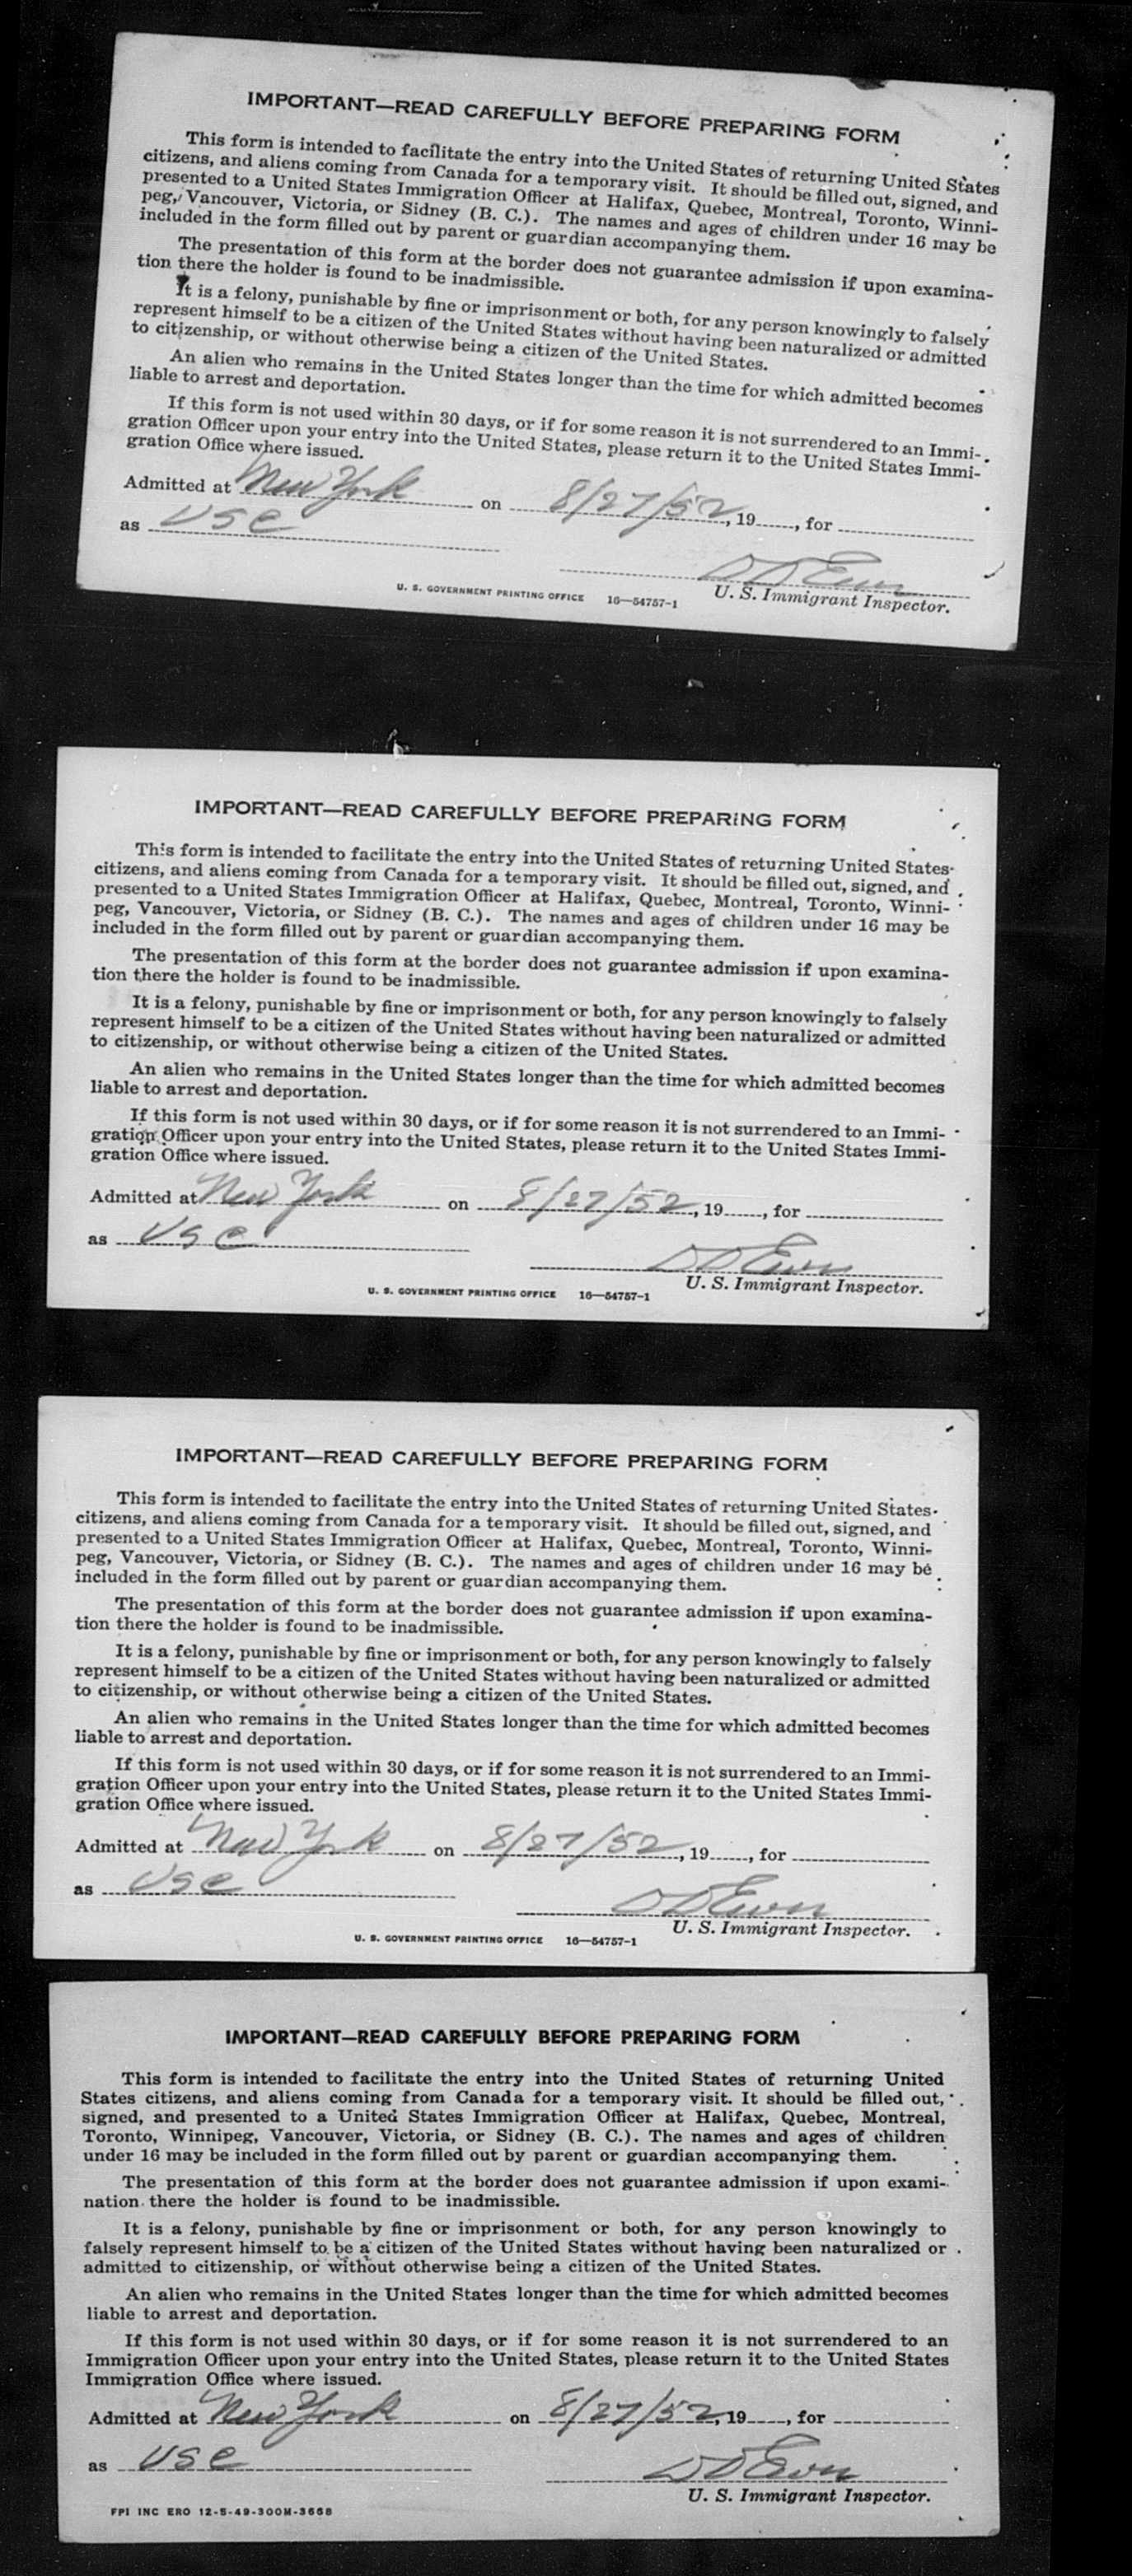 IMPORTANT—READ CAREFULLY BEFORE PREPARING FORM
This form is intended to facilitate the entry into the United States of returning United States
citizens, and aliens coming from Canada for a temporary visit. It should be filled out, signed, and
presented to a United States Immigration Officer at Halifax, Quebec, Montreal, Toronto, Winni-
peg, Vancouver, Victoria, or Sidney (B. C.). The names and ages of children under 16 may be
included in the form filled out by parent or guardian accompanying them.
The presentation of this form at the border does not guarantee admission if upon examina-
tion there the holder is found to be inadmissible.
It is a felony, punishable by fine or imprisonment or both, for any person knowingly to falsely
represent himself to be a citizen of the United States without having been naturalized or admitted
to citizenship, or without otherwise being a citizen of the United States.
An alien who remains in the United States longer than the time for which admitted becomes
liable to arrest and deportation.
If this form is not used within 30 days, or if for some reason it is not surrendered to an Immi-
gration Officer upon your entry into the United States, please return it to the United States Immi-
gration Office where issued.
Admitted at New York on 8/27/52, 19......, for
as USC
U. S. Immigrant Inspector.
U. S. GOVERNMENT PRINTING OFFICE 16—54757-1
IMPORTANT—READ CAREFULLY BEFORE PREPARING FORM
This form is intended to facilitate the entry into the United States of returning United States
citizens, and aliens coming from Canada for a temporary visit. It should be filled out, signed, and
presented to a United States Immigration Officer at Halifax, Quebec, Montreal, Toronto, Winni-
peg, Vancouver, Victoria, or Sidney (B. C.). The names and ages of children under 16 may be
included in the form filled out by parent or guardian accompanying them.
The presentation of this form at the border does not guarantee admission if upon examina-
tion there the holder is found to be inadmissible.
It is a felony, punishable by fine or imprisonment or both, for any person knowingly to falsely
represent himself to be a citizen of the United States without having been naturalized or admitted
to citizenship, or without otherwise being a citizen of the United States.
An alien who remains in the United States longer than the time for which admitted becomes
liable to arrest and deportation.
If this form is not used within 30 days, or if for some reason it is not surrendered to an Immi-
gration Officer upon your entry into the United States, please return it to the United States Immi-
gration Office where issued.
Admitted at New York on 8/27/52, 19......, for
as USC
U. S. Immigrant Inspector.
U. S. GOVERNMENT PRINTING OFFICE 16—54757-1
IMPORTANT—READ CAREFULLY BEFORE PREPARING FORM
This form is intended to facilitate the entry into the United States of returning United States
citizens, and aliens coming from Canada for a temporary visit. It should be filled out, signed, and
presented to a United States Immigration Officer at Halifax, Quebec, Montreal, Toronto, Winni-
peg, Vancouver, Victoria, or Sidney (B. C.). The names and ages of children under 16 may be
included in the form filled out by parent or guardian accompanying them.
The presentation of this form at the border does not guarantee admission if upon examina-
tion there the holder is found to be inadmissible.
It is a felony, punishable by fine or imprisonment or both, for any person knowingly to falsely
represent himself to be a citizen of the United States without having been naturalized or admitted
to citizenship, or without otherwise being a citizen of the United States.
An alien who remains in the United States longer than the time for which admitted becomes
liable to arrest and deportation.
If this form is not used within 30 days, or if for some reason it is not surrendered to an Immi-
gration Officer upon your entry into the United States, please return it to the United States Immi-
gration Office where issued.
Admitted at New York on 8/27/52, 19......, for
as USC
U. S. Immigrant Inspector.
U. S. GOVERNMENT PRINTING OFFICE 16—54757-1
IMPORTANT—READ CAREFULLY BEFORE PREPARING FORM
This form is intended to facilitate the entry into the United States of returning United
States citizens, and aliens coming from Canada for a temporary visit. It should be filled out,
signed, and presented to a United States Immigration Officer at Halifax, Quebec, Montreal,
Toronto, Winnipeg, Vancouver, Victoria, or Sidney (B. C.). The names and ages of children
under 16 may be included in the form filled out by parent or guardian accompanying them.
The presentation of this form at the border does not guarantee admission if upon exami-
nation there the holder is found to be inadmissible.
It is a felony, punishable by fine or imprisonment or both, for any person knowingly to
falsely represent himself to be a citizen of the United States without having been naturalized or
admitted to citizenship, or without otherwise being a citizen of the United States.
An alien who remains in the United States longer than the time for which admitted becomes
liable to arrest and deportation.
If this form is not used within 30 days, or if for some reason it is not surrendered to an
Immigration Officer upon your entry into the United States, please return it to the United States
Immigration Office where issued.
Admitted at New York on 8/27/52, 19......, for
as USC
U. S. Immigrant Inspector.
FPI INC ERO 12-5-49-300M-3668